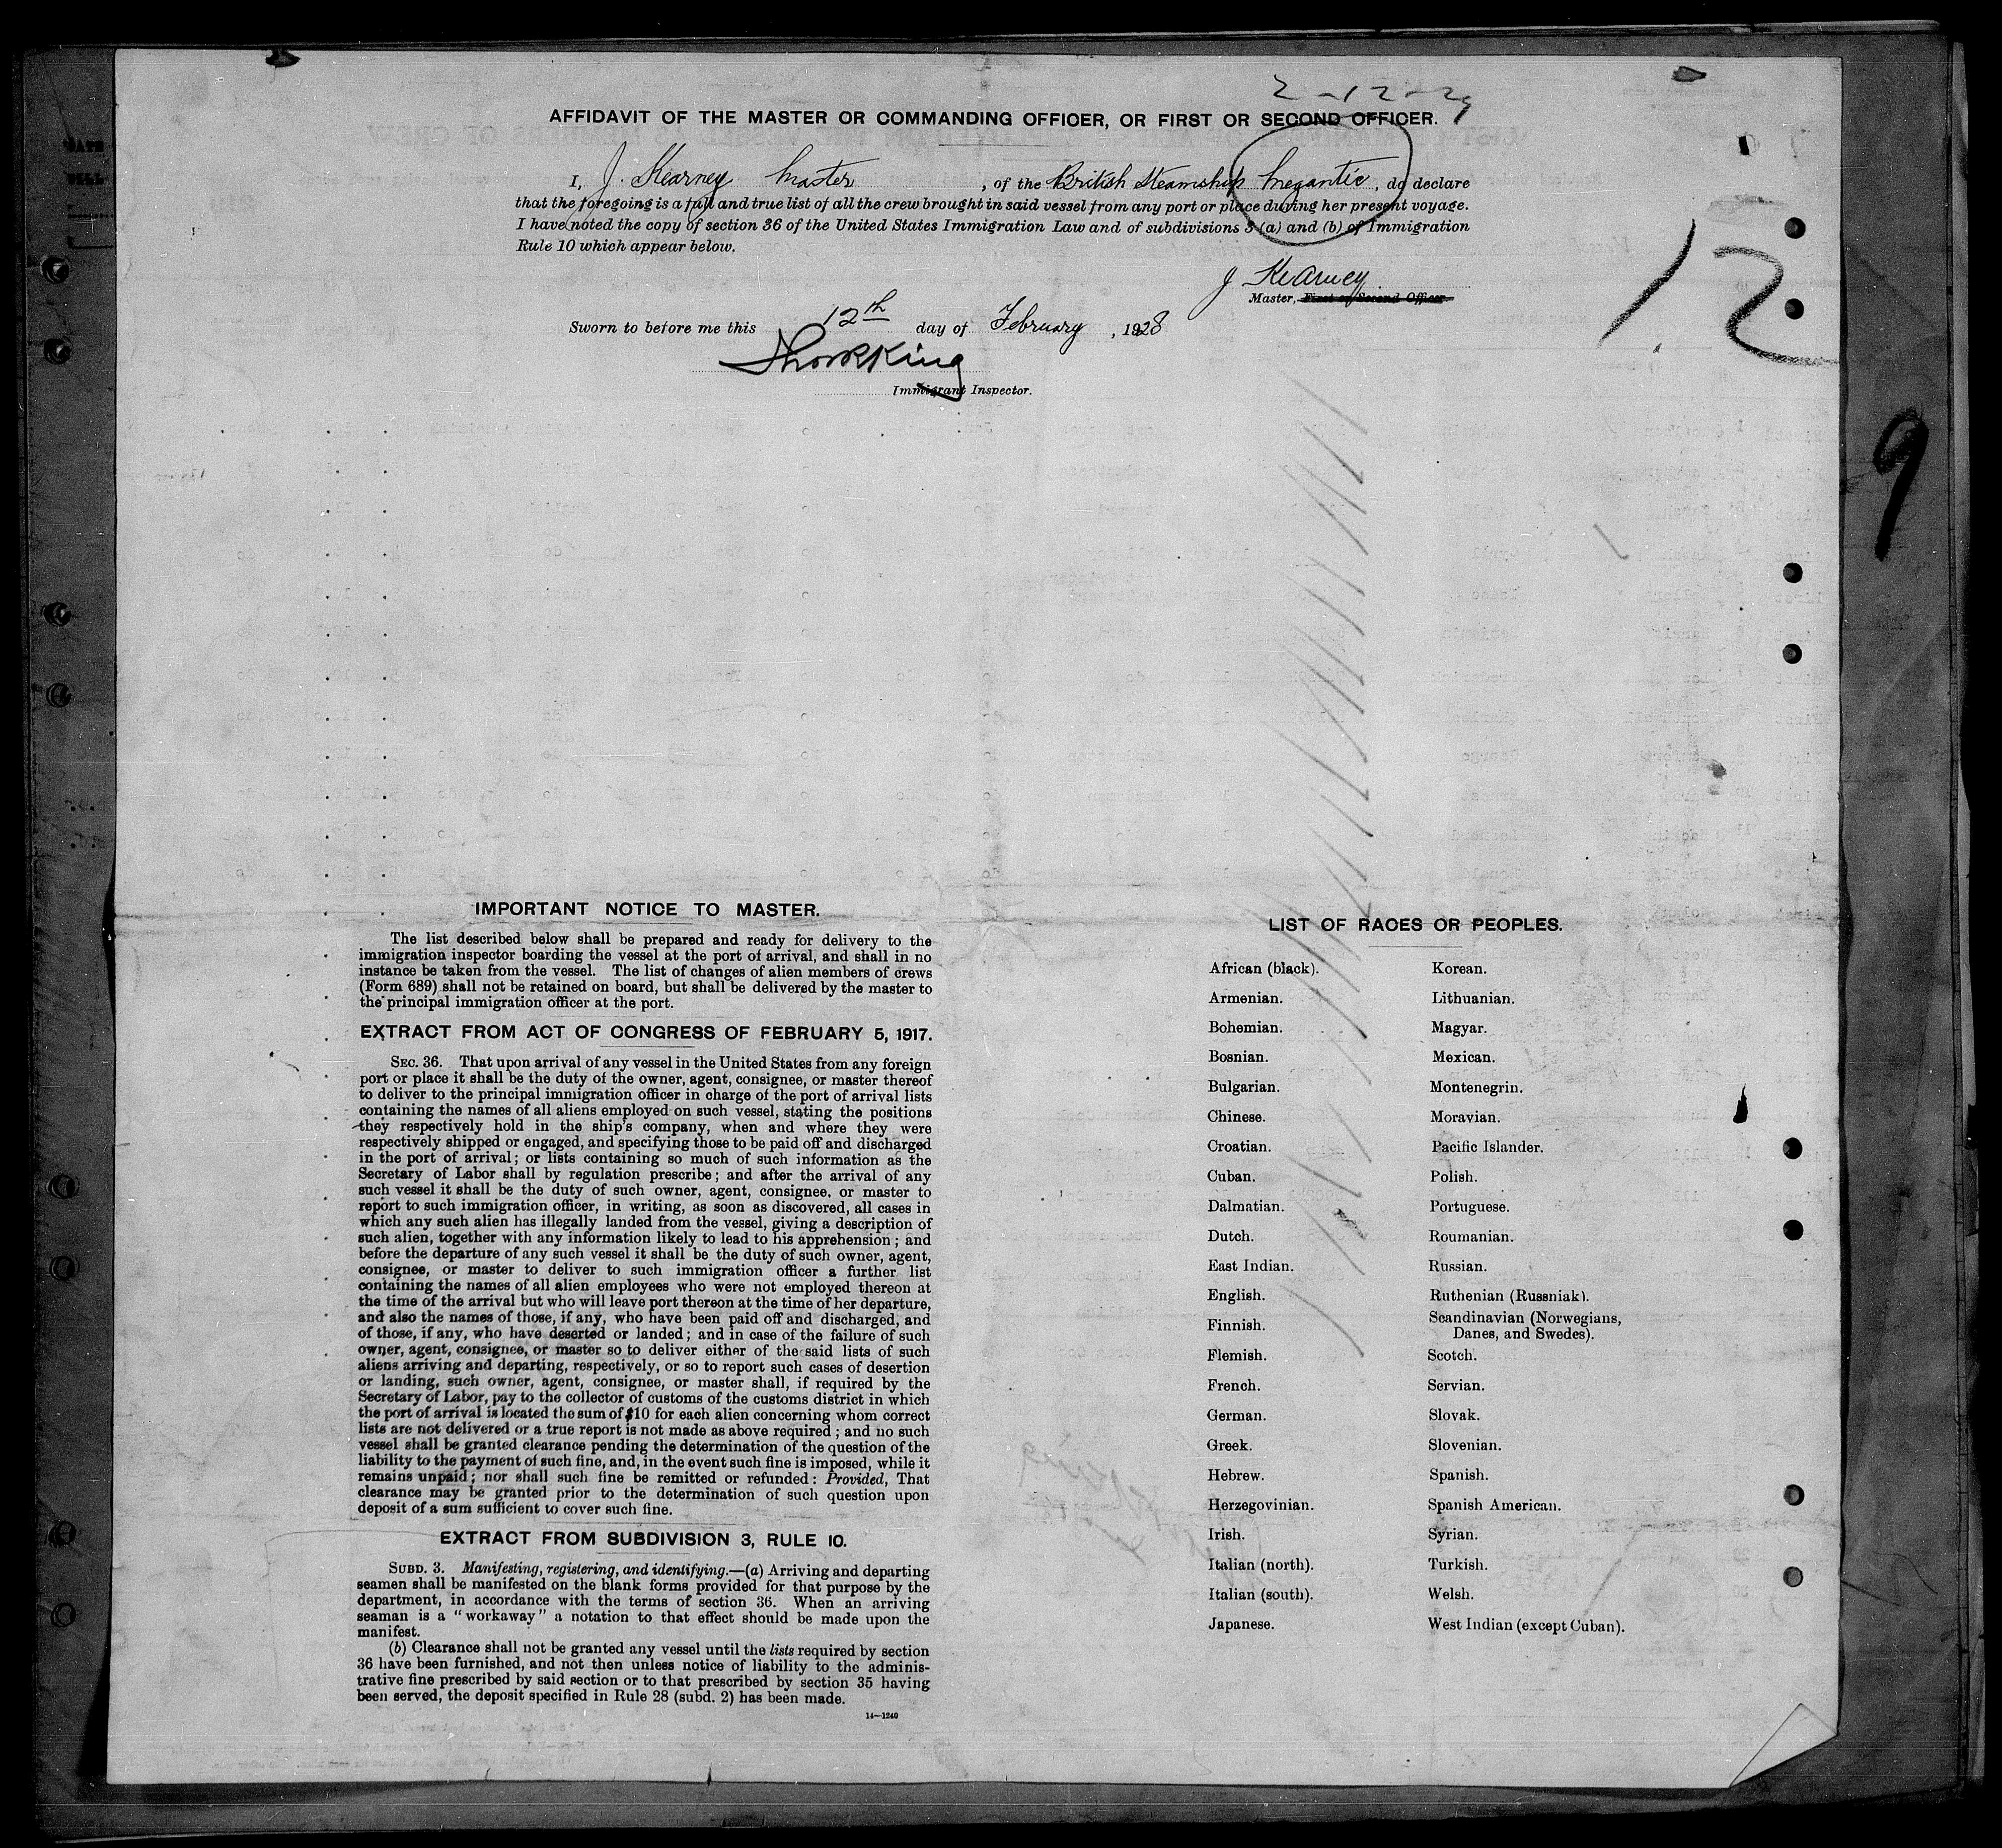 2-12-29
AFFIDAVIT OF THE MASTER OR COMMANDING OFFICER, OR FIRST OR SECOND OFFICER.
I, J. Kearney Master, of the British Steamship Megantic, do declare
that the foregoing is a full and true list of all the crew brought in said vessel from any port or place during her present voyage.
I have noted the copy of section 36 of the United States Immigration Law and of subdivisions 3 (a) and (b) of Immigration
Rule 10 which appear below.
J Kearney
Master, First or Second Officer.
12
Sworn to before me this 12th day of February, 1928
Immigrant Inspector.
9
IMPORTANT NOTICE TO MASTER.
The list described below shall be prepared and ready for delivery to the
immigration inspector boarding the vessel at the port of arrival, and shall in no
instance be taken from the vessel. The list of changes of alien members of crews
(Form 689) shall not be retained on board, but shall be delivered by the master to
the principal immigration officer at the port.
EXTRACT FROM ACT OF CONGRESS OF FEBRUARY 5, 1917.
SEC. 36. That upon arrival of any vessel in the United States from any foreign
port or place it shall be the duty of the owner, agent, consignee, or master thereof
to deliver to the principal immigration officer in charge of the port of arrival lists
containing the names of all aliens employed on such vessel, stating the positions
they respectively hold in the ship's company, when and where they were
respectively shipped or engaged, and specifying those to be paid off and discharged
in the port of arrival; or lists containing so much of such information as the
Secretary of Labor shall by regulation prescribe; and after the arrival of any
such vessel it shall be the duty of such owner, agent, consignee, or master to
report to such immigration officer, in writing, as soon as discovered, all cases in
which any such alien has illegally landed from the vessel, giving a description of
such alien, together with any information likely to lead to his apprehension; and
before the departure of any such vessel it shall be the duty of such owner, agent,
consignee, or master to deliver to such immigration officer a further list
containing the names of all alien employees who were not employed thereon at
the time of the arrival but who will leave port thereon at the time of her departure,
and also the names of those, if any, who have been paid off and discharged, and
of those, if any, who have deserted or landed; and in case of the failure of such
owner, agent, consignee, or master so to deliver either of the said lists of such
aliens arriving and departing, respectively, or so to report such cases of desertion
or landing, such owner, agent, consignee, or master shall, if required by the
Secretary of Labor, pay to the collector of customs of the customs district in which
the port of arrival is located the sum of $10 for each alien concerning whom correct
lists are not delivered or a true report is not made as above required; and no such
vessel shall be granted clearance pending the determination of the question of the
liability to the payment of such fine, and, in the event such fine is imposed, while it
remains unpaid; nor shall such fine be remitted or refunded: Provided, That
clearance may be granted prior to the determination of such question upon
deposit of a sum sufficient to cover such fine.
EXTRACT FROM SUBDIVISION 3, RULE 10.
SUBD. 3. Manifesting, registering, and identifying.—(a) Arriving and departing
seamen shall be manifested on the blank forms provided for that purpose by the
department, in accordance with the terms of section 36. When an arriving
seaman is a "workaway" a notation to that effect should be made upon the
manifest.
(b) Clearance shall not be granted any vessel until the lists required by section
36 have been furnished, and not then unless notice of liability to the adminis-
trative fine prescribed by said section or to that prescribed by section 35 having
been served, the deposit specified in Rule 28 (subd. 2) has been made.
14—1240
LIST OF RACES OR PEOPLES.
African (black).
Armenian.
Bohemian.
Bosnian.
Bulgarian.
Chinese.
Croatian.
Cuban.
Dalmatian.
Dutch.
East Indian.
English.
Finnish.
Flemish.
French.
German.
Greek.
Hebrew.
Herzegovinian.
Irish.
Italian (north).
Italian (south).
Japanese.
Korean.
Lithuanian.
Magyar.
Mexican.
Montenegrin.
Moravian.
Pacific Islander.
Polish.
Portuguese.
Roumanian.
Russian.
Ruthenian (Russniak).
Scandinavian (Norwegians,
Danes, and Swedes).
Scotch.
Servian.
Slovak.
Slovenian.
Spanish.
Spanish American.
Syrian.
Turkish.
Welsh.
West Indian (except Cuban).